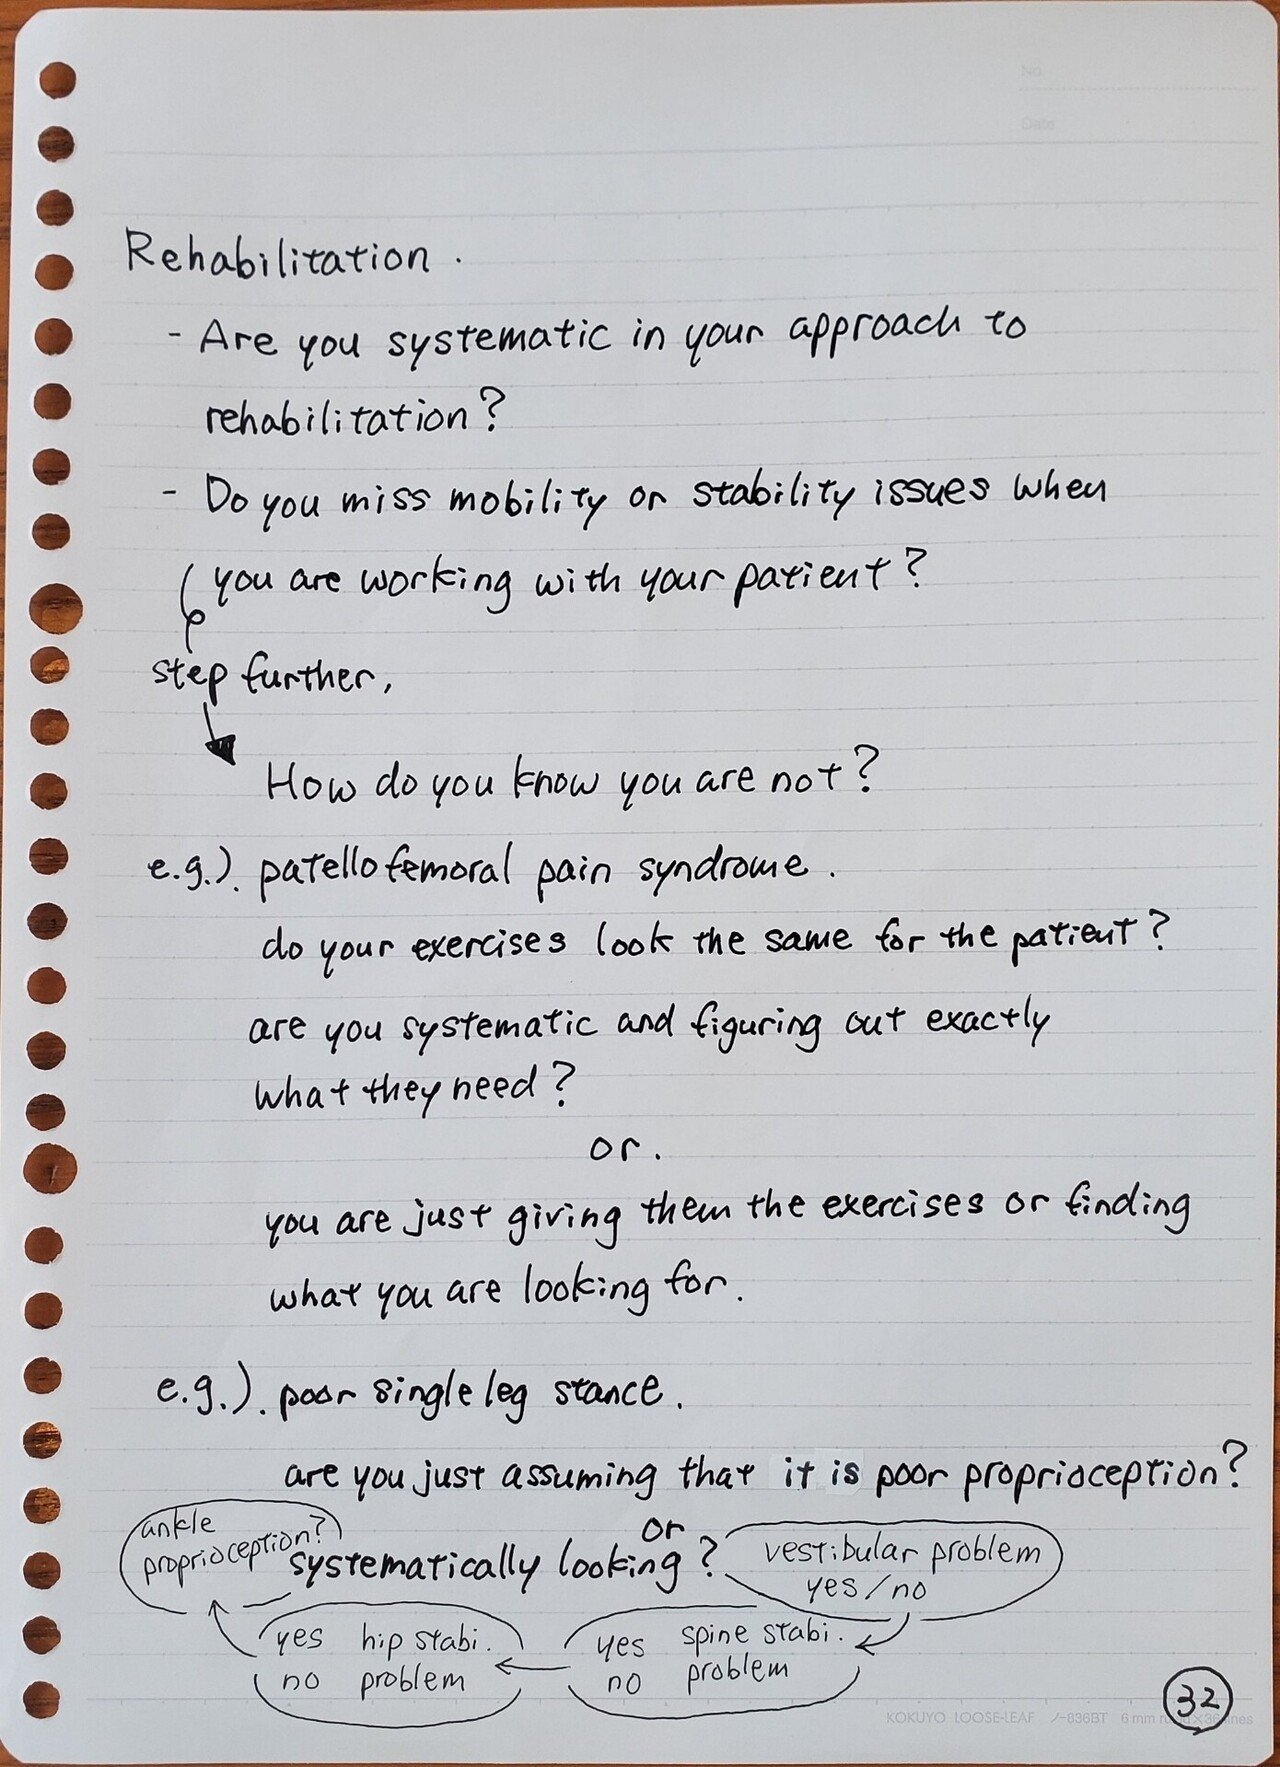 No.
Date
Rehabilitation.
- Are you systematic in your approach to
rehabilitation?
- Do you miss mobility or stability issues when
you are working with your patient?
step further,
How do you know you are not?
e.g.). patellofemoral pain syndrome.
do your exercises look the same for the patient?
are you systematic and figuring out exactly
what they need?
or.
you are just giving them the exercises or finding
what you are looking for.
e.g.). poor single leg stance.
are you just assuming that it is poor proprioception?
or
systematically looking?
vestibular problem
yes/no
yes spine stabi.
no problem
yes hip stabi.
no problem
ankle
proprioception?
32
KOKUYO LOOSE-LEAF ノ-836BT 6mm